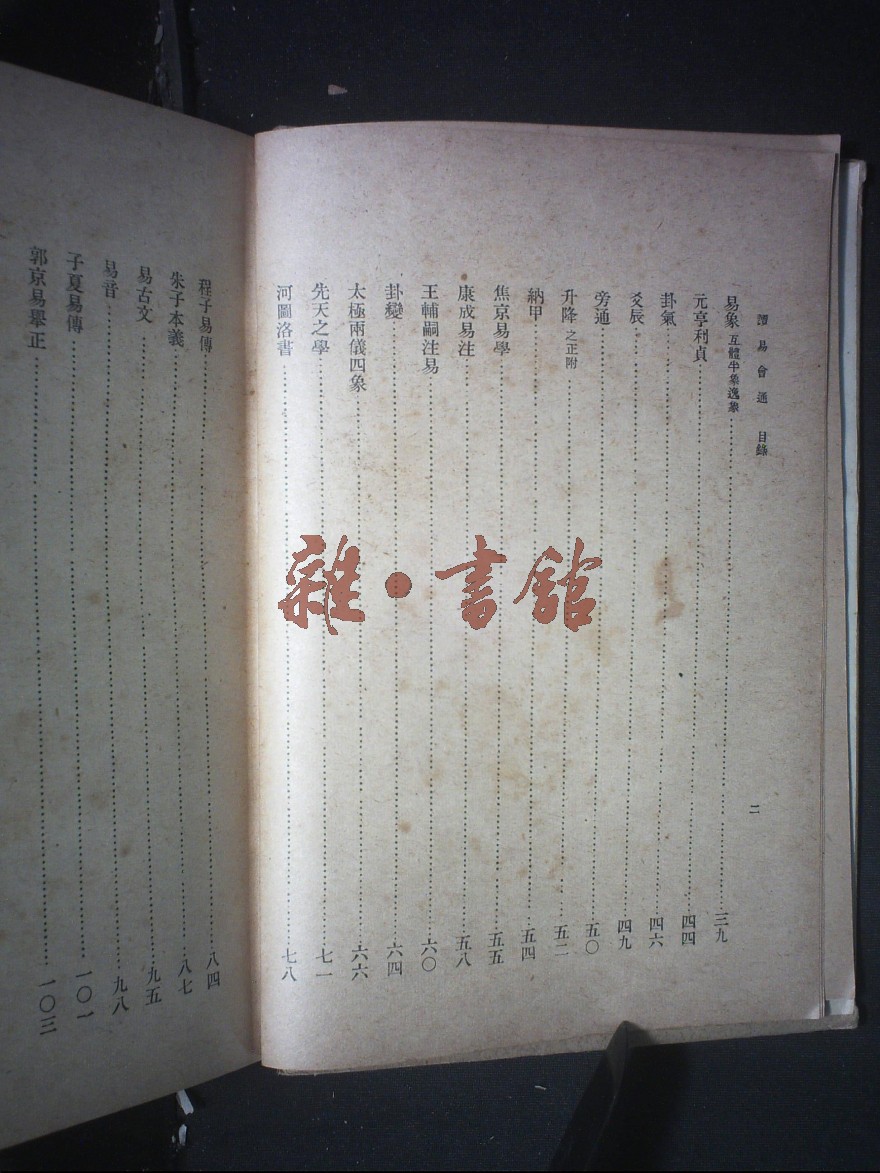 讀易會通 目錄 二
易象 互體半象逸象 三九
元亨利貞 四四
卦氣 四六
爻辰 四九
旁通 五〇
升降 之正附 五二
納甲 五四
焦京易學 五五
康成易注 五八
王輔嗣注易 六〇
卦變 六四
太極兩儀四象 六六
先天之學 七一
河圖洛書 七八
程子易傳 八四
朱子本義 八七
易古文 九五
易音 九八
子夏易傳 一〇一
郭京易舉正 一〇三
雜·書館